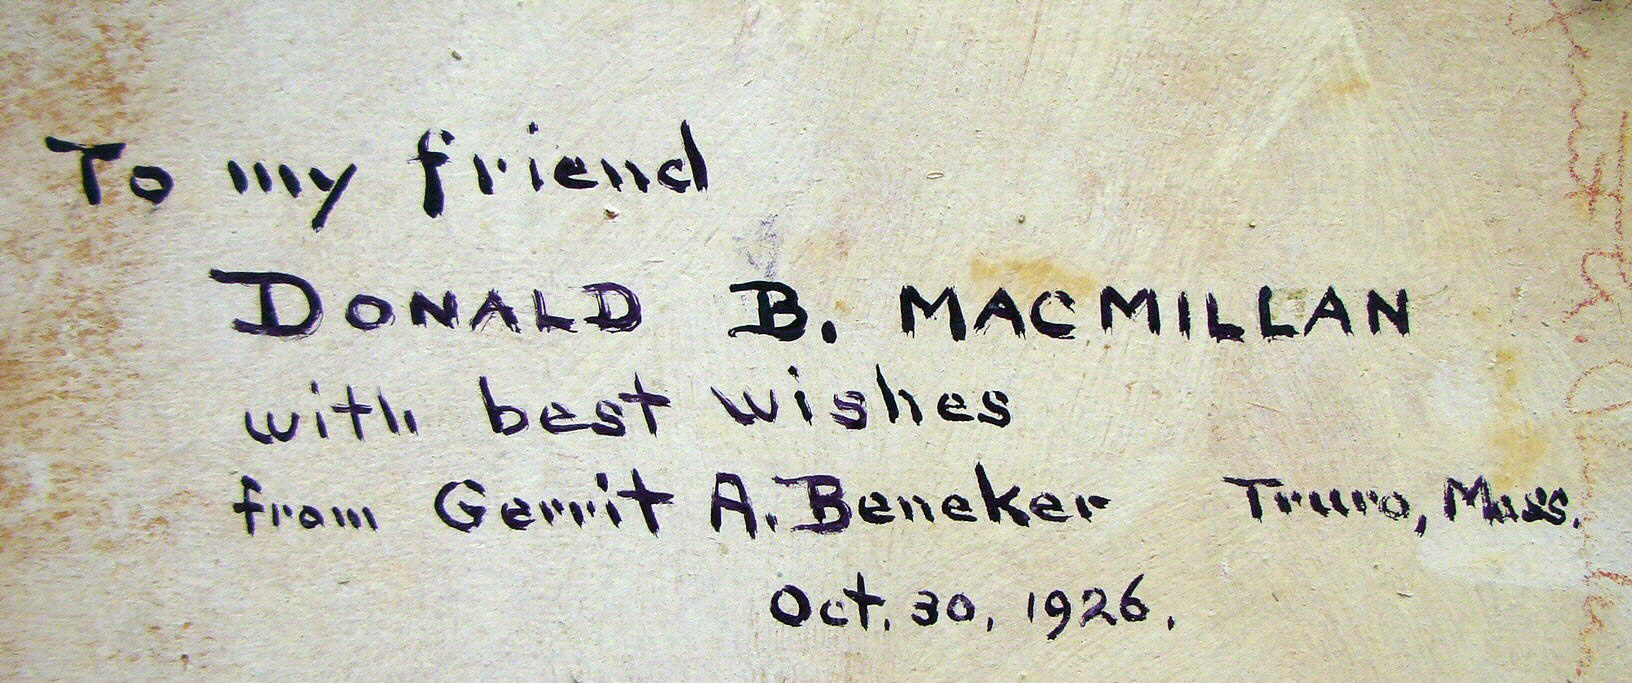 To my friend
DONALD B. MACMILLAN
with best wishes
from Gerrit A. Beneker Truro, Mass.
Oct. 30, 1926.